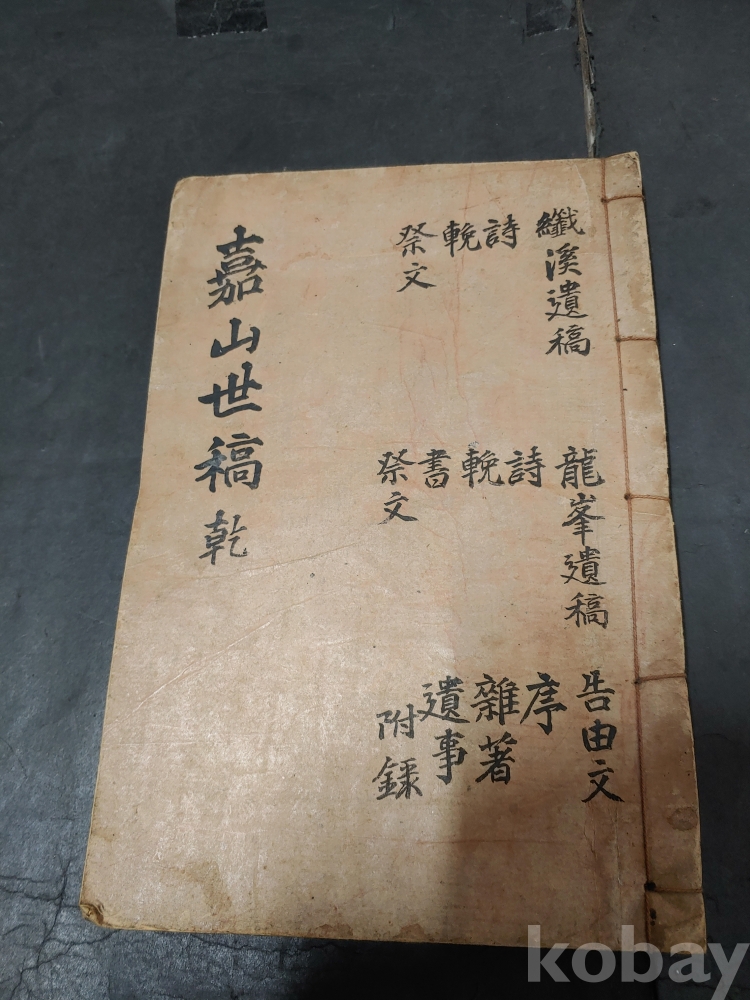 纖溪遺稿
詩
輓
祭文
龍峯遺稿
詩
輓
書
祭文
告由文
序
雜著
遺事
附錄
嘉山世稿 乾
kobay